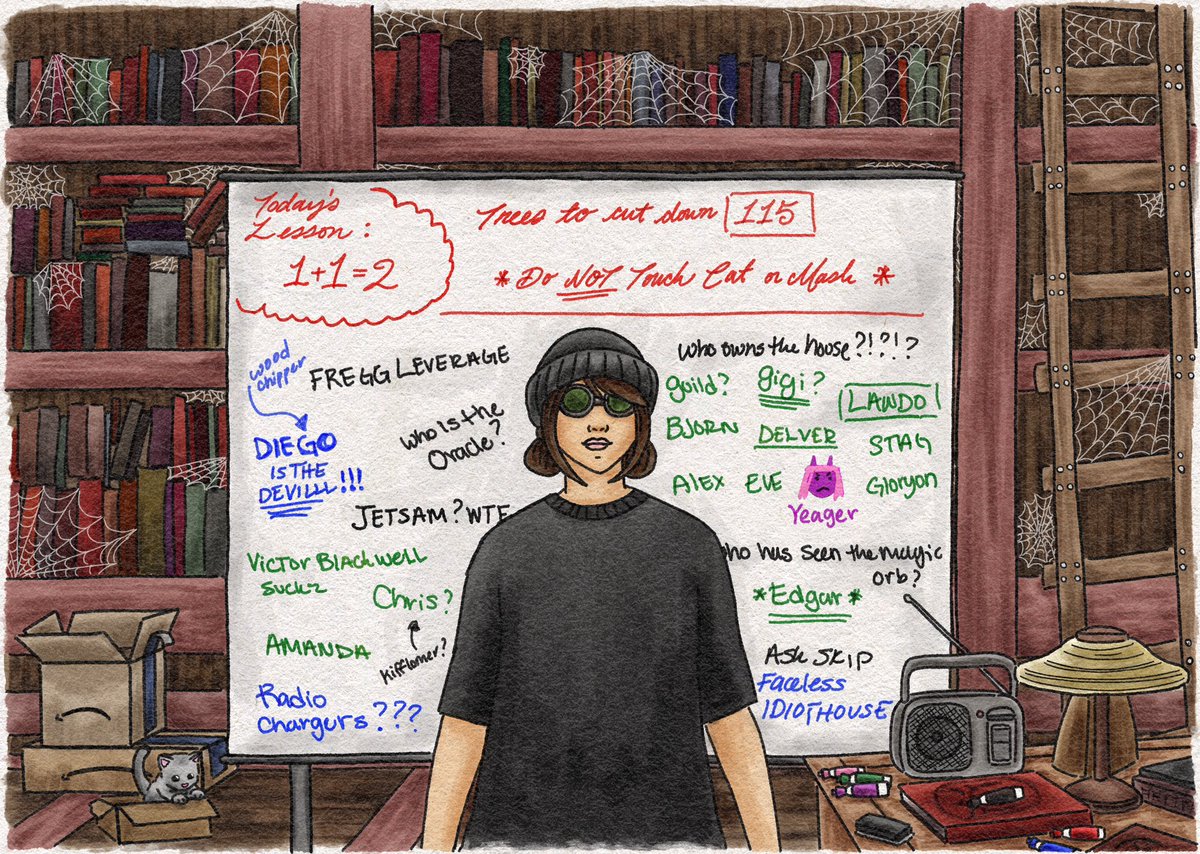 Today's
Lesson :
1+1=2
Trees to cut down 115
* Do NOT Touch Cat or Mask *
wood
chipper
FREGG LEVERAGE
DIEGO
IS THE
DEVILLL!!!
Who Is the
Oracle?
JETSAM? WTF
Victor Blackwell
Suckz
Chris?
Kifflomer?
AMANDA
Radio
Chargurs ???
Who owns the house?!?!?
guild? gigi? LAWDO
BJORN DELVER STAG
ALEX EVE Gloryon
Yeager
ho has seen the magic
orb?
*Edgar*
ASK SKIP
Faceless
IDIOTHOUSE